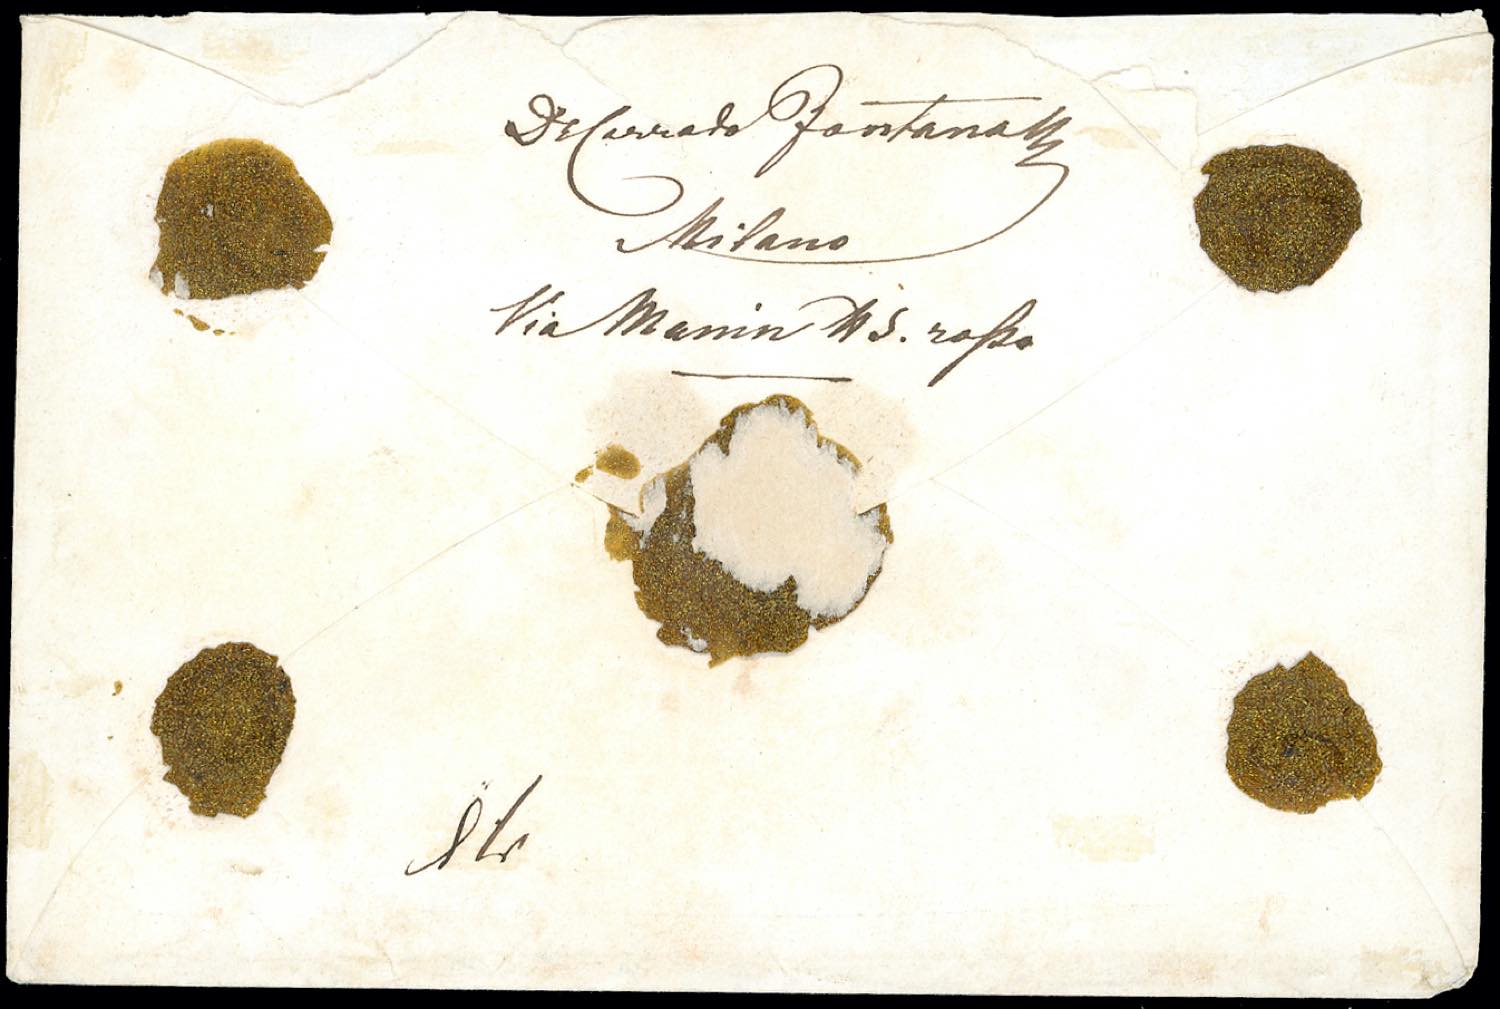 Dr Corrado Fontana
Milano
Via Manin N 5. rosso